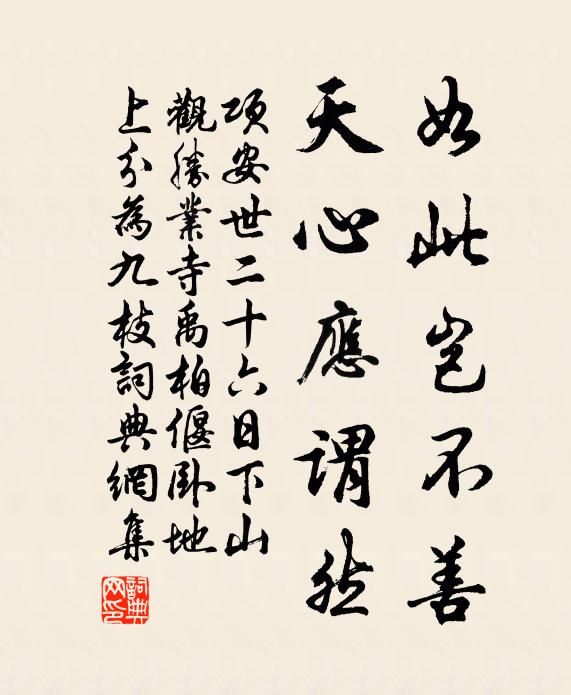 如此豈不善
天心應謂然
項安世二十六日下山
觀勝業寺禹柏偃卧地
上分為九枝詞典網集
詞典網印